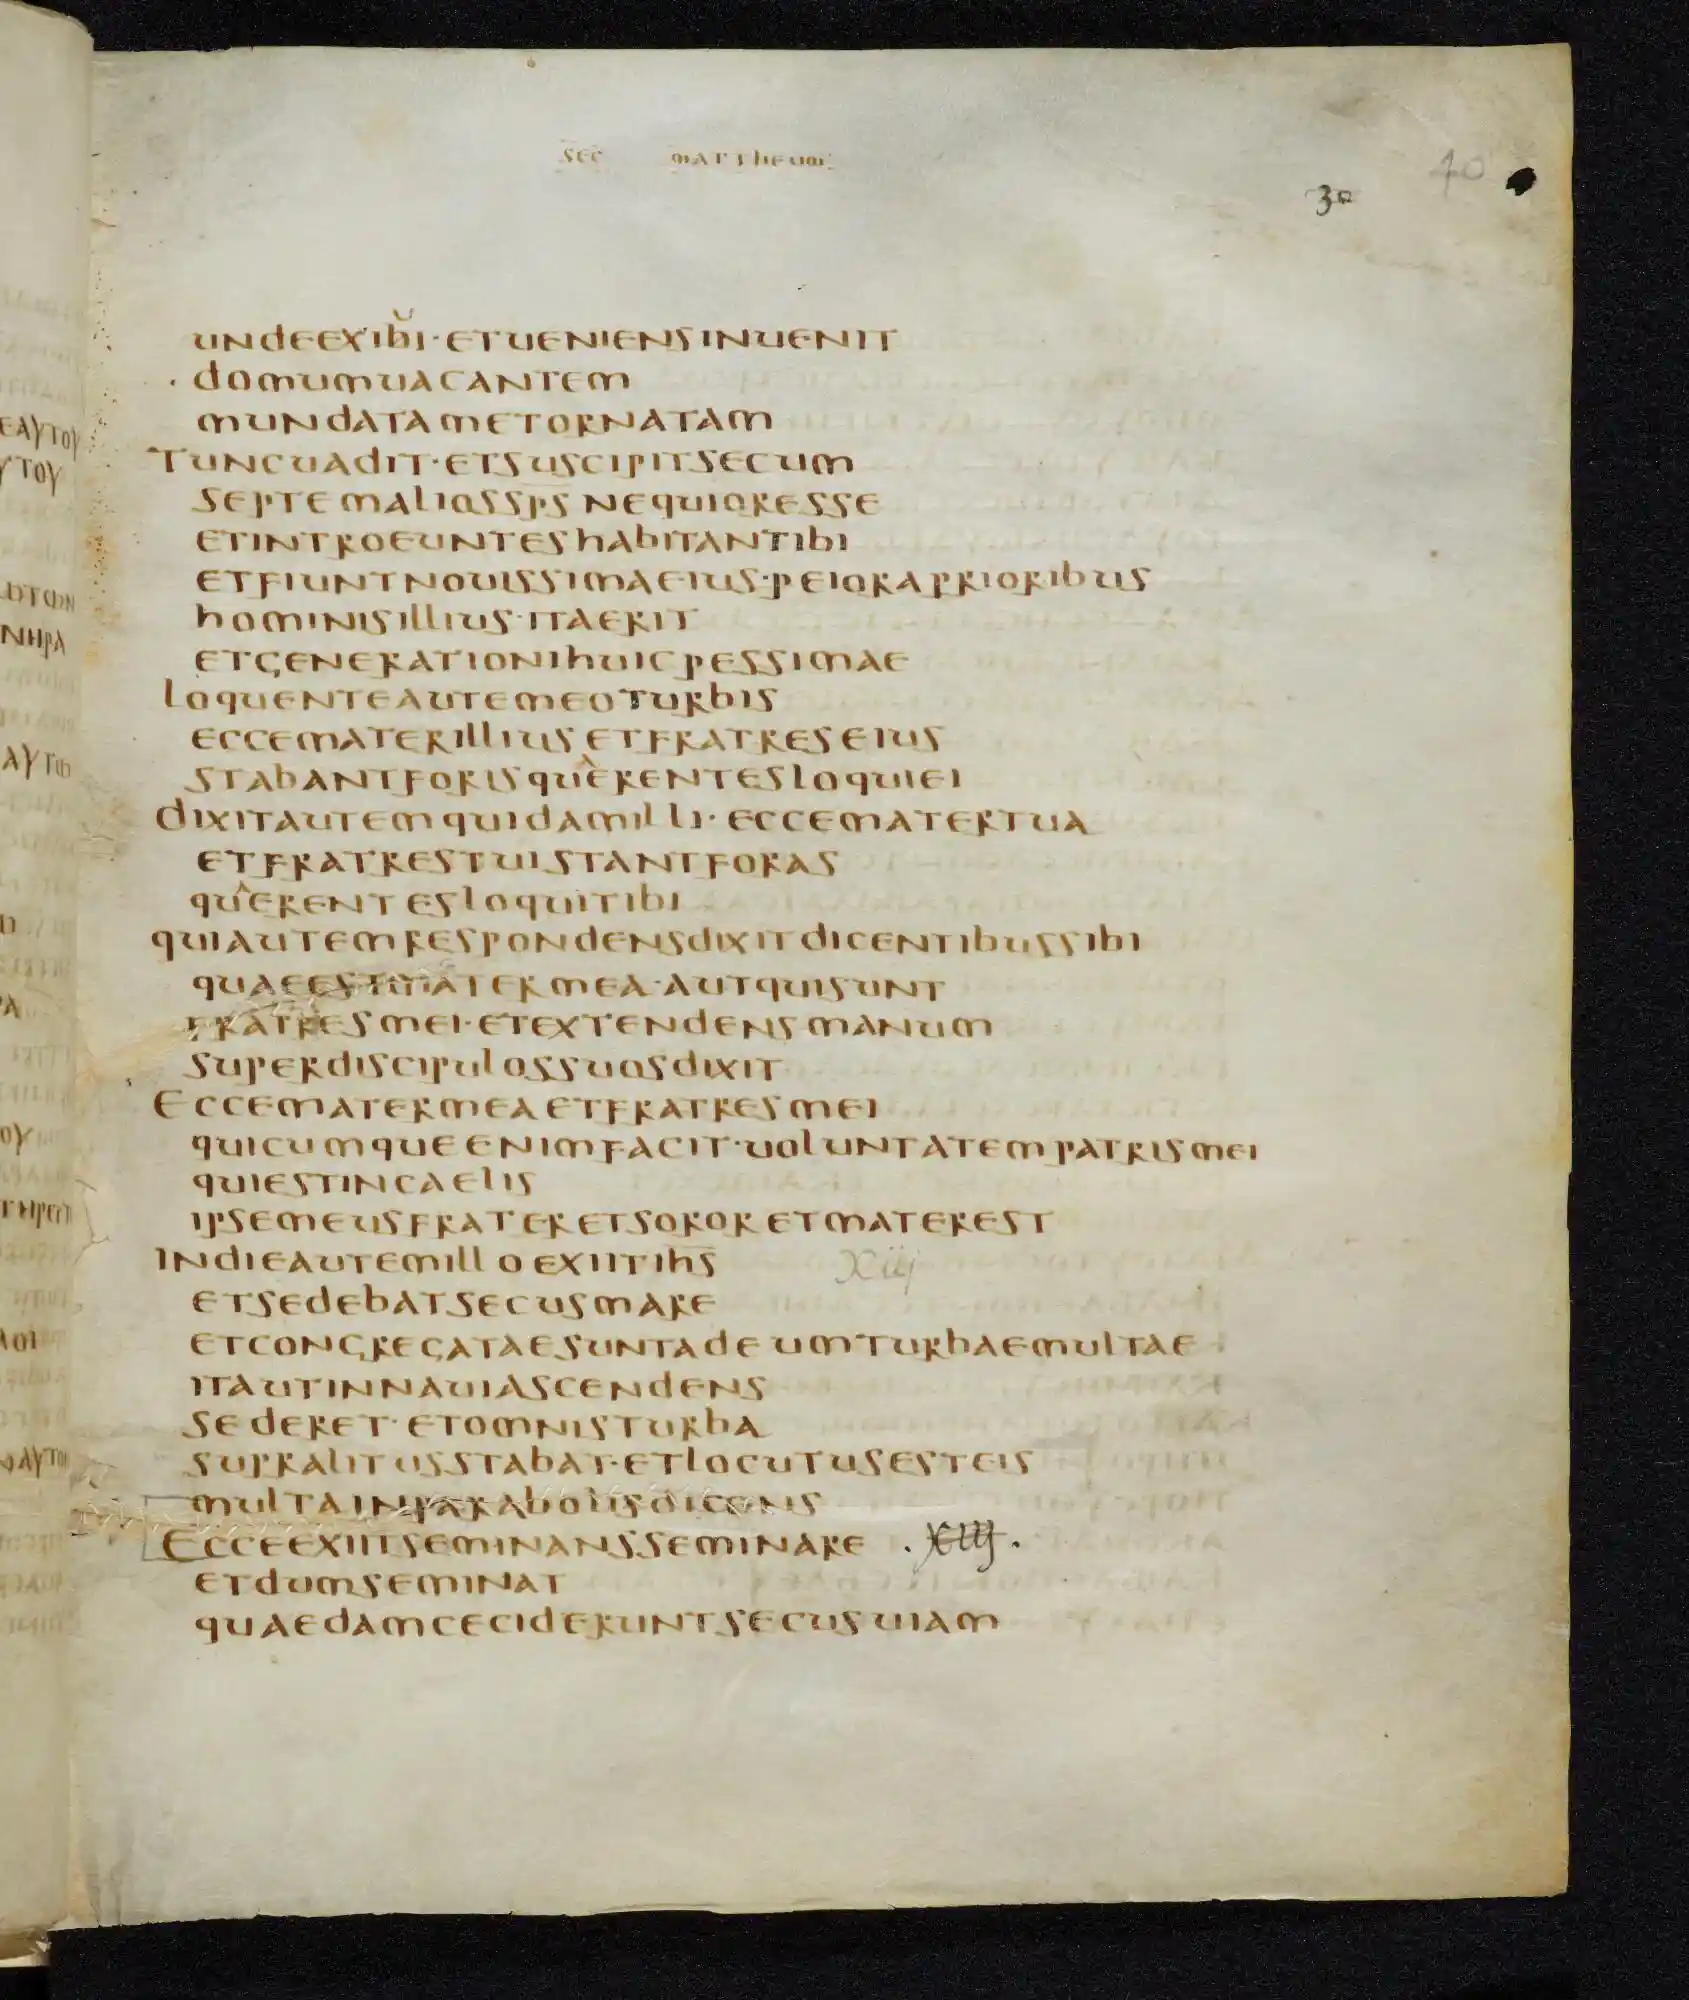 SEC MATTHEUM
40
30
UNDEEXIBI·ETUENIENSINUENIT
·DOMUMUACANTEM
MUNDATAMETORNATAM
TUNCUADIT·ETSUSCIPITSECUM
SEPTEMALIOSSPS NEQUIORESSE
ETINTROEUNTESHABITANTIBI
ETFIUNTNOUISSIMAEIUS·PEIORAPRIORIBUS
HOMINISILLIUS·ITAERIT
ETGENERATIONIHUICPESSIMAE
LOQUENTEAUTEMEOTURBIS
ECCEMATERILLIUS ETFRATRESEIUS
STABANTFORISQUERENTESLOQUIEI
DIXITAUTEMQUIDAMILLI·ECCEMATERTUA
ETFRATRESTUISTANTFORAS
QUERENTESLOQUITIBI
QUIAUTEMRESPONDENSDIXITDICENTIBUSSIBI
QUAEESTMATERMEA·AUTQUISUNT
FRATRESMEI·ETEXTENDENSMANUM
SUPERDISCIPULOSSUOSDIXIT
ECCEMATERMEAETFRATRESMEI
QUICUMQUEENIMFACIT·UOLUNTATEMPATRISMEI
QUIESTINCAELIS
IPSEMEUSFRATERETSORORETMATEREST
INDIEAUTEMILLOEXIITIHS xiij
ETSEDEBATSECUSMARE
ETCONGREGATAESUNTADEUMTURBAEMULTAE
ITAUTINNAUIASCENDENS
SEDERET·ETOMNISTURBA
SUPRALITUSSTABAT·ETLOCUTUSESTEIS
MULTAINPARABOLISDICENS
ECCEEXIITSEMINANSSEMINARE .XIIJ.
ETDUMSEMINAT
QUAEDAMCECIDERUNTSECUSUIAM